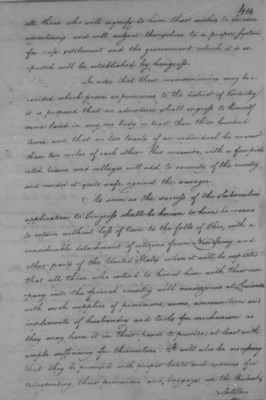 414
all those who will signify to him their wishes to become
adventurers and will subject themselves to a proper system
for safe settlement and the government which it is ex-
pected will be established by Congress.
In order that those inconveniences may be a-
voided which prove so injurious to the district of Kentucky
it is proposed that no adventurer shall engross to himself
more land in any one body at least than three hundred
acres, and that no two tracts of an individual be nearer
than two miles of each other. This measure, with a few well
towns and villages will add to security of the country
and render it quite safe against the savages.
So soon as the success of the Subscribers
application to Congress shall be known to him, he means
to return without loss of time to the falls of Ohio, with a
considerable detachment of citizens from New Jersey and
other parts of the United States when it will be expected
that all those who intend to honor him with their com-
pany into the country will rendezvous at Louisville
with such supplies of provisions, arms, ammunition and
implements of husbandry and tools for mechanism as
they may have it in their power to provide, at least with
ample sufficiency for themselves. It will also be necessary
that they be provided with proper boats and
transporting their provisions and baggage up the Wabash